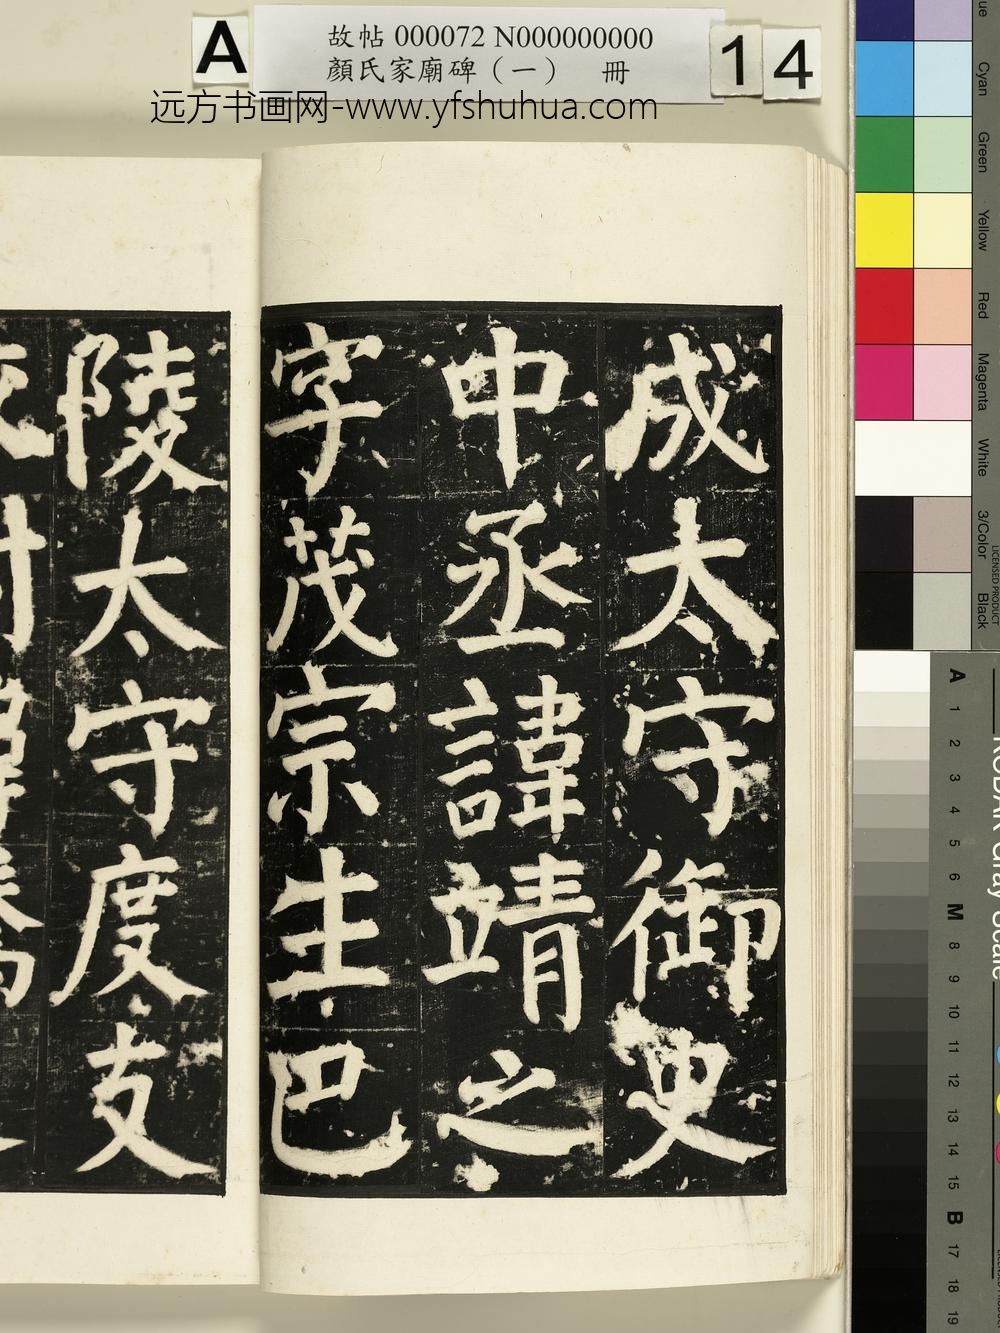 A
故帖 000072 N000000000
顏氏家廟碑（一） 冊
14
远方书画网-www.yfshuhua.com
成太守御史
中丞諱靖之
字茂宗生巴
陵太守度支
Cyan
Green
Yellow
Red
Magenta
White
3/Color
Black
LICENSED PRODUCT
A
1
2
3
4
5
6
M
8
9
10
11
12
13
14
15
B
17
18
19